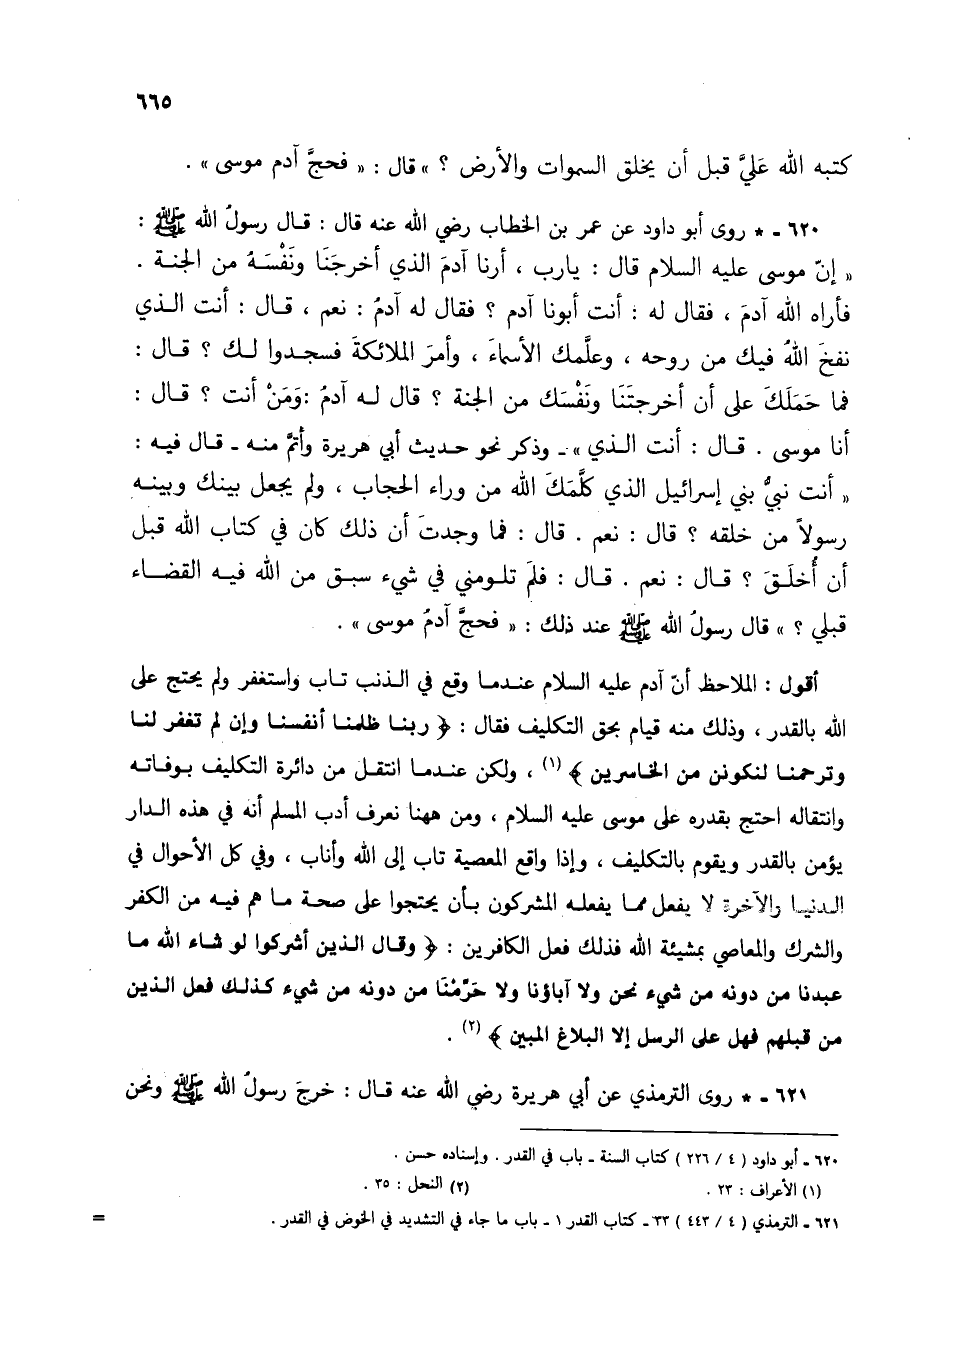 ٦٦٥
كتبه الله عَليَّ قبل أن يخلق السموات والأرض ؟ » قال : « فحجَّ آدم موسى » .
٦٢٠ ـ * روى أبو داود عن عمر بن الخطاب رضي الله عنه قال : قال رسولُ الله ﷺ :
« إنّ موسى عليه السلام قال : يارب ، أرنا آدمَ الذي أخرجَنَا ونَفْسَهُ من الجنة .
فأراه الله آدمَ ، فقال له : أنت أبونا آدم ؟ فقال له آدمُ : نعم ، قال : أنت الذي
نفخَ اللهُ فيك من روحه ، وعلَّمك الأسماءَ ، وأمرَ الملائكةَ فسجدوا لك ؟ قال :
فما حَمَلَكَ على أن أخرجتَنَا ونَفْسَك من الجنة ؟ قال له آدمُ :وَمَنْ أنت ؟ قال :
أنا موسى . قال : أنت الذي » ـ وذكر نحو حديث أبي هريرة وأتمَّ منه ـ قال فيه :
« أنت نبيُّ بني إسرائيل الذي كلَّمَكَ الله من وراء الحجاب ، ولم يجعل بينك وبينه
رسولاً من خلقه ؟ قال : نعم . قال : فما وجدتَ أن ذلك كان في كتاب الله قبل
أن أُخلَقَ ؟ قال : نعم . قال : فلمَ تلومني في شيء سبق من الله فيه القضاء
قبلي ؟ » قال رسولُ الله ﷺ عند ذلك : « فحجَّ آدمُ موسى » .
أقول : الملاحظ أنّ آدم عليه السلام عندما وقع في الذنب تاب واستغفر ولم يحتج على
الله بالقدر ، وذلك منه قيام بحق التكليف فقال : ﴿ ربنا ظلمنا أنفسنا وإن لم تغفر لنا
وترحمنا لنكونن من الخاسرين ﴾ (١) ، ولكن عندما انتقل من دائرة التكليف بوفاته
وانتقاله احتج بقدره على موسى عليه السلام ، ومن ههنا نعرف أدب المسلم أنه في هذه الدار
يؤمن بالقدر ويقوم بالتكليف ، وإذا واقع المعصية تاب إلى الله وأناب ، وفي كل الأحوال في
الدنيا والآخرة لا يفعل مما يفعله المشركون بأن يحتجوا على صحة ما هم فيه من الكفر
والشرك والمعاصي بمشيئة الله فذلك فعل الكافرين : ﴿ وقال الذين أشركوا لو شاء الله ما
عبدنا من دونه من شيء نحن ولا آباؤنا ولا حَرَّمْنَا من دونه من شيء كذلك فعل الذين
من قبلهم فهل على الرسل إلا البلاغ المبين ﴾ (٢) .
٦٢١ ـ * روى الترمذي عن أبي هريرة رضي الله عنه قال : خرجَ رسولُ الله ﷺ ونحن
٦٢٠ ـ أبو داود ( ٤ / ٢٢٦ ) كتاب السنة ـ باب في القدر . وإسناده حسن .
(١) الأعراف : ٢٣ . (٢) النحل : ٣٥ .
٦٢١ ـ الترمذي ( ٤ / ٤٤٣ ) ٣٣ـ كتاب القدر ١ ـ باب ما جاء في التشديد في الخوض في القدر . =